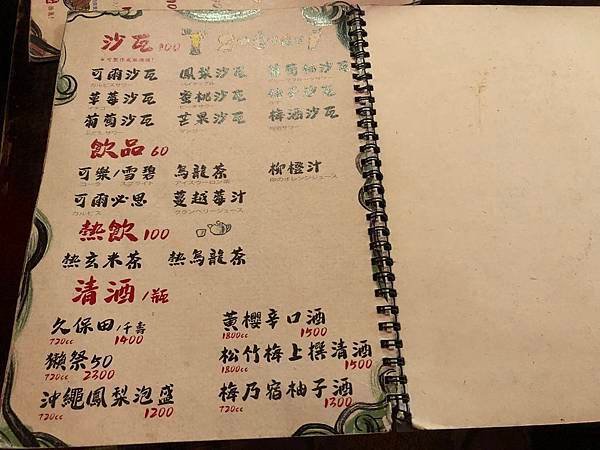 沙瓦 100
可爾沙瓦 鳳梨沙瓦 葡萄柚沙瓦
草莓沙瓦 蜜桃沙瓦 柚子沙瓦
葡萄沙瓦 芒果沙瓦 梅酒沙瓦
飲品 60
可樂/雪碧 烏龍茶 柳橙汁
コーラ スプライト アイスウーロン茶
可爾必思 蔓越莓汁
カルピス クランベリージュース
熱飲 100
熱玄米茶 熱烏龍茶
清酒/瓶
久保田/千壽 黃櫻辛口酒
720cc 1400 1800cc 1500
獺祭50 松竹梅上撰清酒
720cc 2300 1800cc 1500
沖繩鳳梨泡盛 梅乃宿柚子酒
720cc 1200 720cc 1300